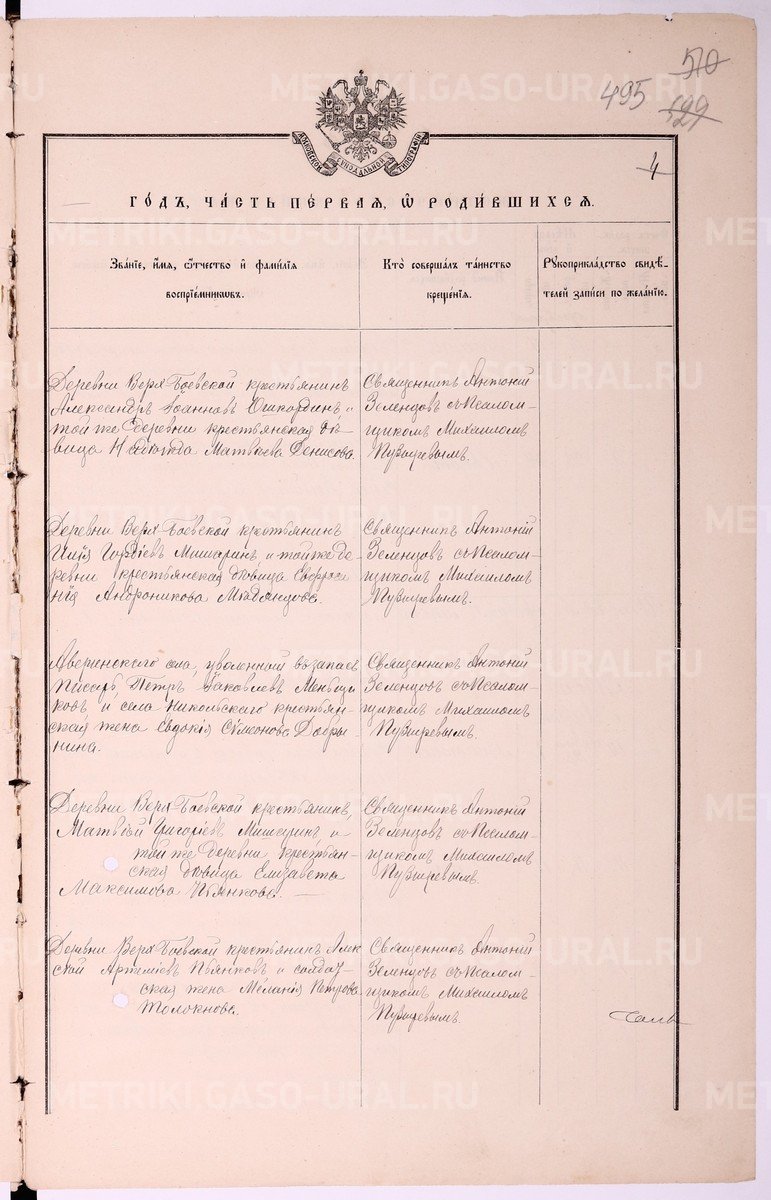 510
495
129
4
МОСКОВСКОЙ СѴНОДАЛЬНОЙ ТИПОГРАФІИ
ГО́ДЪ, ЧА́СТЬ ПЕ́РВАЯ, Ѡ҆ РОДИ́ВШИХСЯ.
Зва́нїе, и҆́мя, ѻ҆́тчество и҆ фами́лїя
воспрїе́мникѡвъ.
Кто̀ соверша́лъ та́инство
креще́нїя.
Рꙋкоприкла́дство свидѣ́-
телей за́писи по жела́нїю.
Деревни Верх-Боевской крестьянинъ
Александръ Іоанновъ и
той же деревни крестьянская дѣ-
вица Надежда Матвѣева Денисова.
Священникъ Антоній
Зеленцовъ съ Псалом-
щикомъ Михаиломъ
Пузыревымъ.
Деревни Верх-Боевской крестьянинъ
Илія Гордіевъ Мишаринъ и той же де
ревни крестьянская дѣвица Евфроси
нія Андроникова Медвянцова.
Священникъ Антоній
Зеленцовъ съ Псалом-
щикомъ Михаиломъ
Пузыревымъ.
Аверинскаго села, уволенный въ запасъ
Писарь, Петръ Іаковлевъ Меньши
ковъ и села Никольскаго крестьян-
ская жена Евдокія Сѵмеонова Добры
нина.
Священникъ Антоній
Зеленцовъ съ Псалом-
щикомъ Михаиломъ
Пузыревымъ.
Деревни Верх-Боевской крестьянинъ,
Матвѣй Григоріевъ Мишаринъ и
той же деревни крестьян-
ская дѣвица Елизавета
Максимова Пьянкова.
Священникъ Антоній
Зеленцовъ съ Псалом-
щикомъ Михаиломъ
Пузыревымъ.
Деревни Верх-Боевской крестьянинъ Алек
сѣй Артеміевъ Пьянковъ и солдат-
ская жена Меланія Петрова
Толокнова.
Священникъ Антоній
Зеленцовъ съ Псалом-
щикомъ Михаиломъ
Пузыревымъ.
METRIKI.GASO-URAL.RU